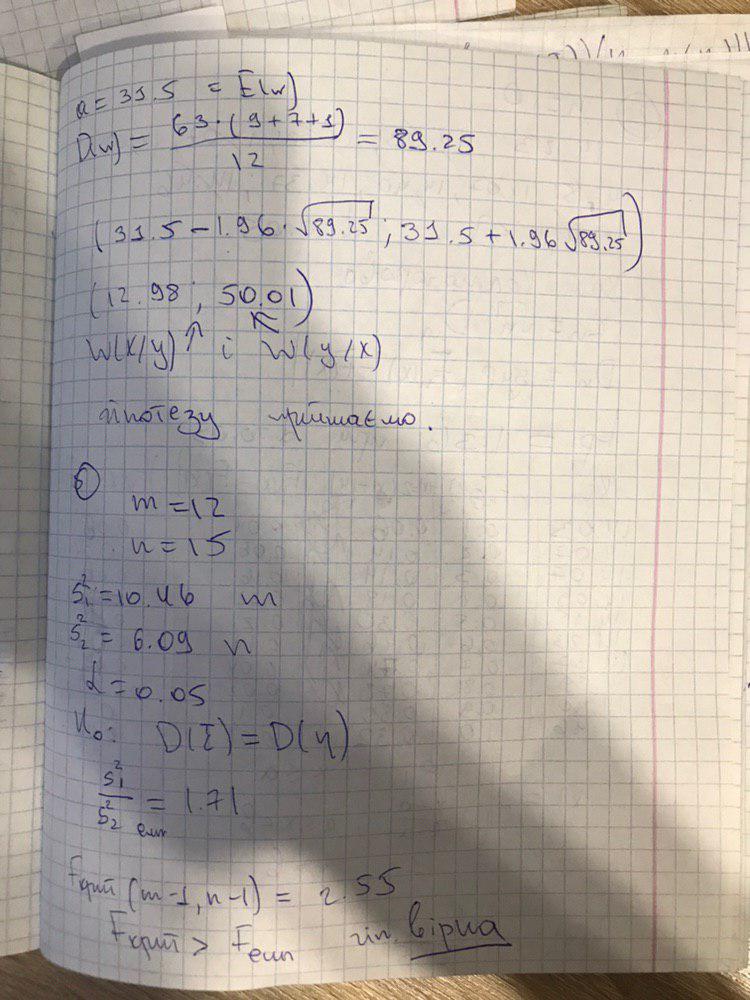 a = 31.5 = E(w)
D(w) = 63·(9+7+1) / 12 = 89.25
(31.5 − 1.96·√89.25 ; 31.5 + 1.96√89.25)
(12.98 ; 50.01)
W(x/y) ↑ і W(y/x)
гіпотезу приймаємо.
б
m = 12
n = 15
s₁² = 10.46 m
s₂² = 6.09 n
α = 0.05
H₀: D(ξ) = D(η)
s₁²/s₂² емп = 1.71
Fкрит (m−1, n−1) = 2.55
Fкрит > Fемп гіп. вірна